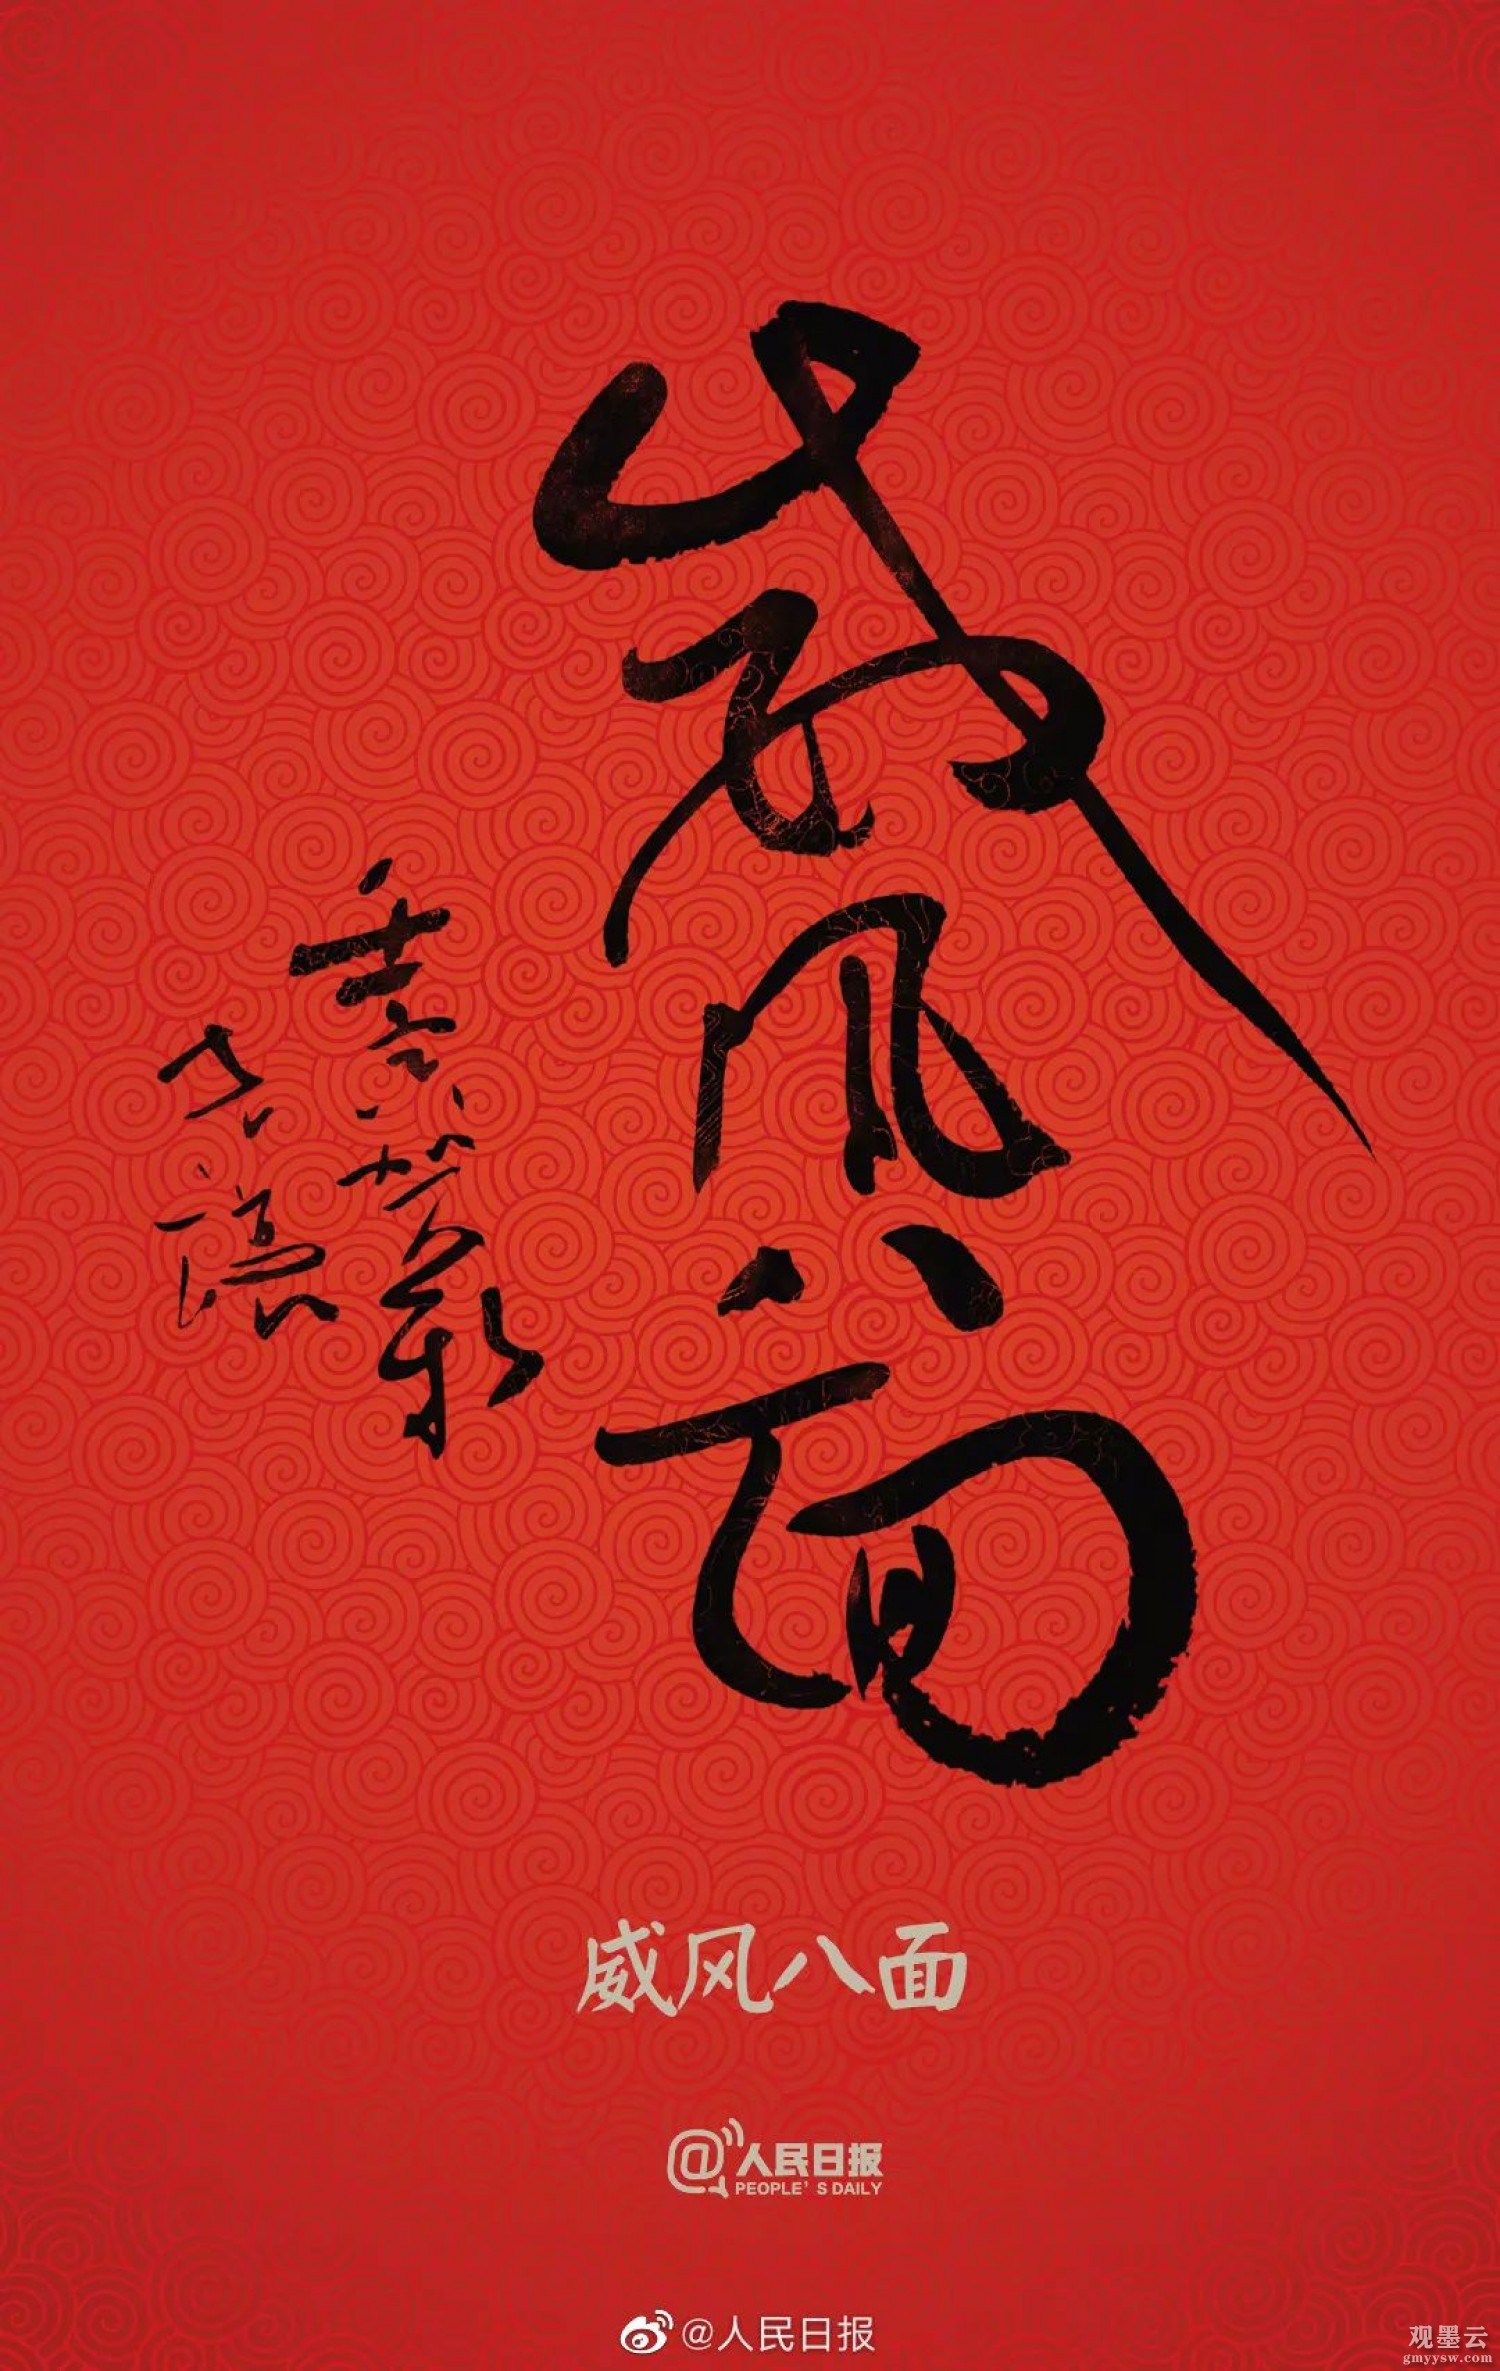 威风八面
威风八面
@人民日报
PEOPLE'S DAILY
@人民日报
观墨云
gmyysw.com